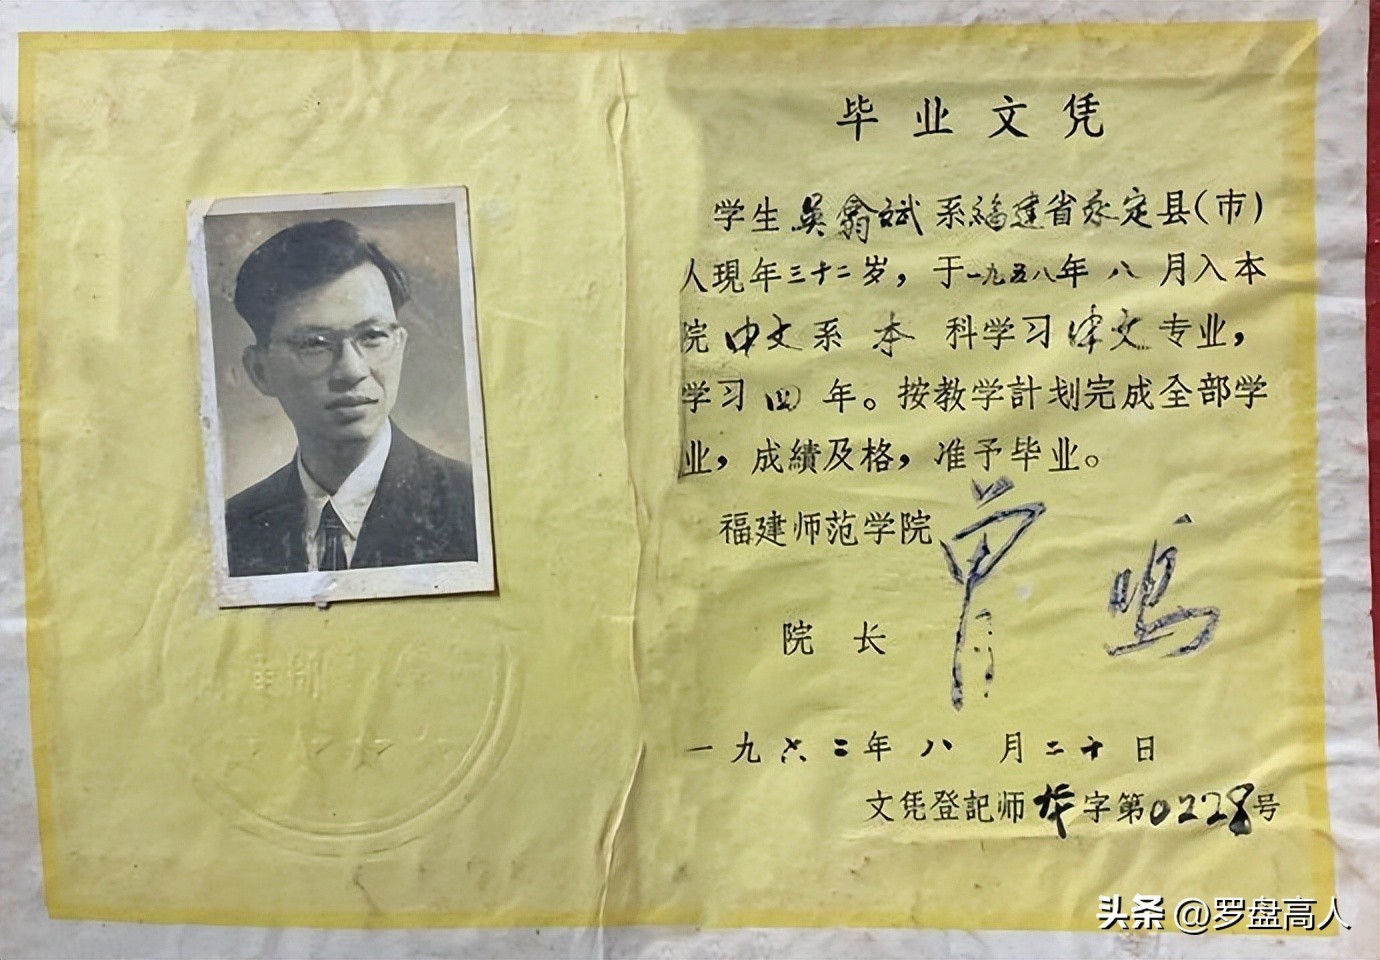 毕业文凭
学生吳翕斌系福建省永定县(市)
人現年三十二岁，于一九五八年八月入本
院中文系本科学习文专业，
学习四年。按教学計划完成全部学
业，成績及格，准予毕业。
福建师范学院
院长 曾鸣
一九六二年八月二十日
文凭登記师本字第0228号
头条 @罗盘高人